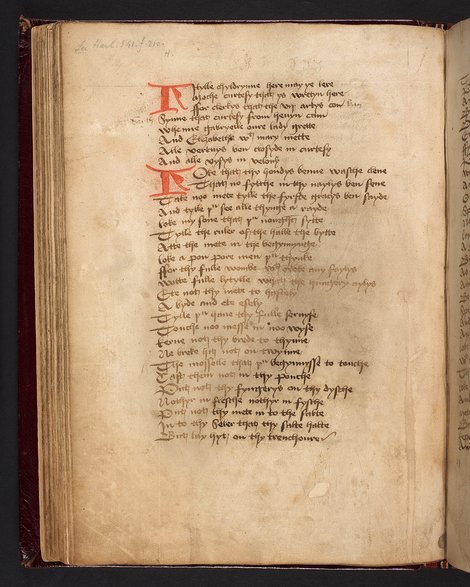 See Harl. 541. f. 210.
Lytylle chyldrynne here may ye lere
Moche curtesy that ys wretyn here
ffor clerkys that the vij artys con
Synne that curtesy from hevyn com
Whenne gabryelle oure lady grette
And Elizabethe wt mary mette
Alle vertuys ben closyde in curtesy
And alle vysys in velony
Loke that thy hondys benne wasche clene
That no fylthe in thy naylys ben sene
Take noo mete tylle the fyrste gracys ben sayde
And tylle þu see alle thynge a rayde
loke my sone that þu nought sytte
Tylle the ruler of the halle the bytte
Atte the mete in the begynnynge
loke a pon pore men þu thynke
ffor thy fulle wombe
Wotte fulle lytylle what the hungery aylys
Ete not thy mete to hastely
A byde and ete esely
Tylle þu have thy fulle servyse
Touche noo messe in noo wyse
Kerve not thy brede to thynne
Ne breke hit not on twynne
The mosselle that þu begynnysse to touche
Cast them not in thy pouche
Put not thy fyngerys on thy dysche
Nothyr in flesche nothyr in fysche
Put not thy mete in to the salte
In to thy Seler that thy salte halte
But lay hyt on thy trenchoure